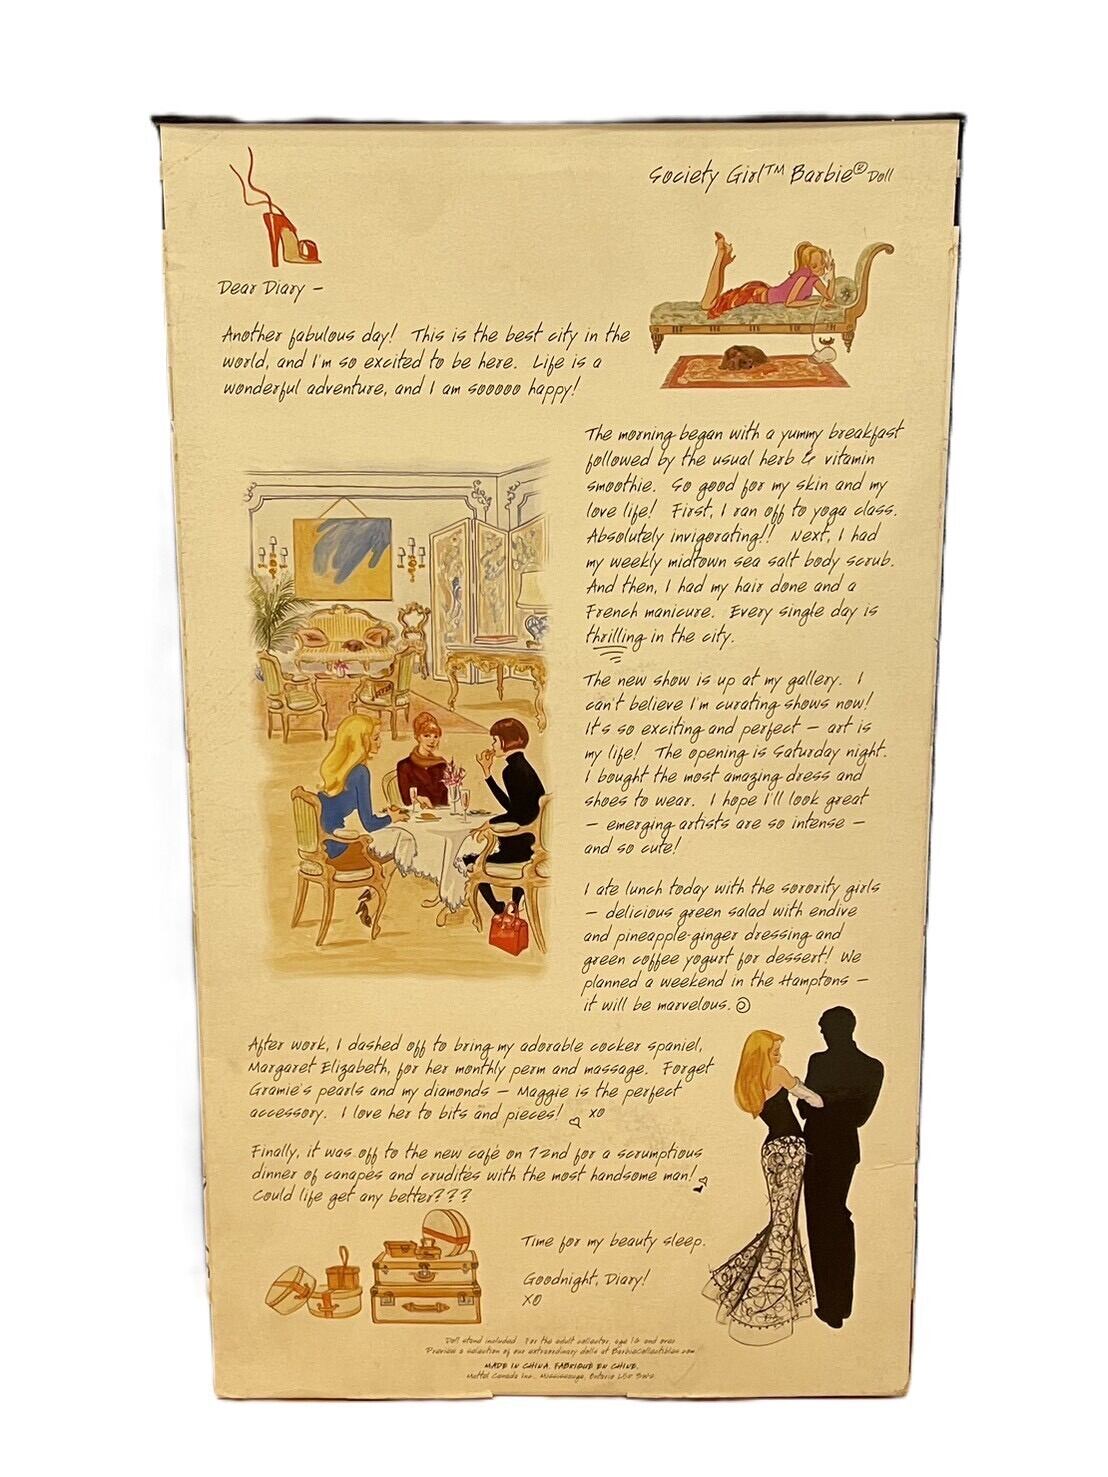 Society Girl™ Barbie® Doll
Dear Diary –
Another fabulous day! This is the best city in the
world, and I'm so excited to be here. Life is a
wonderful adventure, and I am sooooo happy!
The morning began with a yummy breakfast
followed by the usual herb & vitamin
smoothie. So good for my skin and my
love life! First, I ran off to yoga class.
Absolutely invigorating!! Next, I had
my weekly midtown sea salt body scrub.
And then, I had my hair done and a
French manicure. Every single day is
thrilling in the city.
The new show is up at my gallery. I
can't believe I'm curating shows now!
It's so exciting and perfect – art is
my life! The opening is Saturday night.
I bought the most amazing dress and
shoes to wear. I hope I'll look great
– emerging artists are so intense –
and so cute!
I ate lunch today with the sorority girls
– delicious green salad with endive
and pineapple-ginger dressing and
green coffee yogurt for dessert! We
planned a weekend in the Hamptons –
it will be marvelous.
After work, I dashed off to bring my adorable cocker spaniel,
Margaret Elizabeth, for her monthly perm and massage. Forget
Gramie's pearls and my diamonds – Maggie is the perfect
accessory. I love her to bits and pieces! XO
Finally, it was off to the new café on 72nd for a scrumptious
dinner of canapés and crudités with the most handsome man!
Could life get any better???
Time for my beauty sleep.
Goodnight, Diary!
XO
Doll stand included. For the adult collector, age 14 and over.
Preview a selection of our extraordinary dolls at BarbieCollectibles.com
MADE IN CHINA. FABRIQUÉ EN CHINE.
Mattel Canada Inc., Mississauga, Ontario L5R 3W2